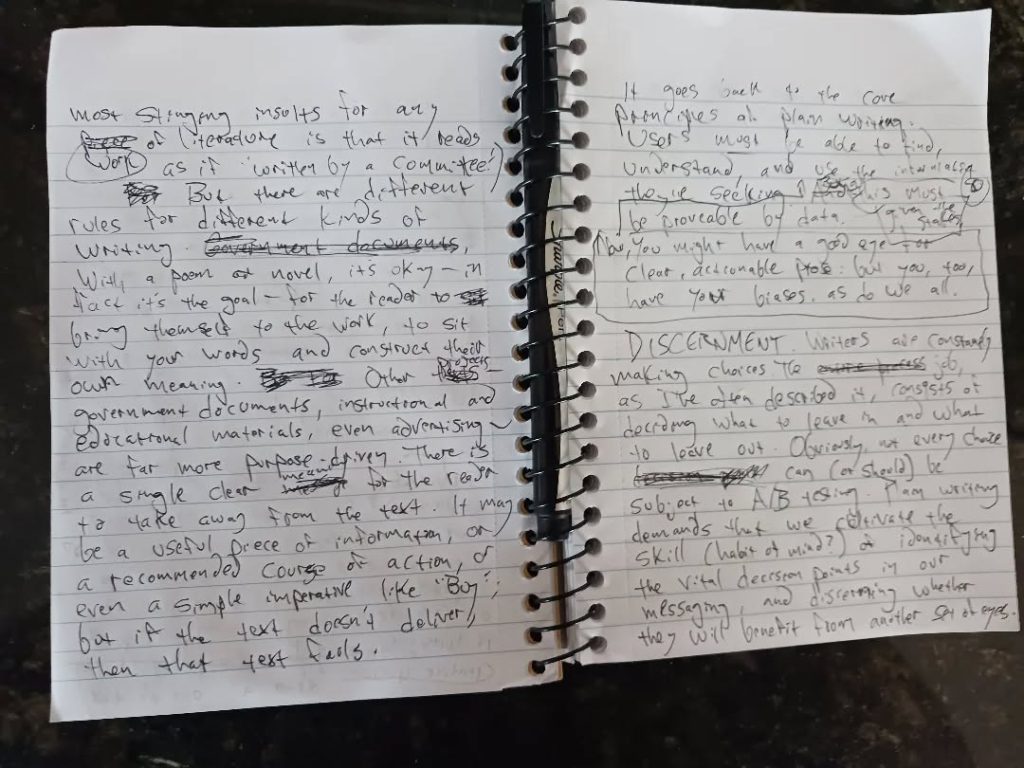 most stinging insults for any
of literature is that it reads
work as if 'written by a committee.'
But there are different
rules for different kinds of
writing. Government documents,
With a poem or novel, it's okay – in
fact it's the goal – for the reader to
bring themself to the work, to sit
with your words and construct their
own meaning. Other projects –
government documents, instructional and
educational materials, even advertising –
are far more purpose-driven. There is
a single clear meaning for the reader
to take away from the text. It may
be a useful piece of information, or
a recommended course of action, or
even a simple imperative like "Buy";
but if the text doesn't deliver,
then that text fails.
It goes back to the core
principles of plain writing.
Users must be able to find,
understand, and use the information
they're seeking this must
be proveable by data. (given the
Now, you might have a good eye for
clear, actionable prose: but you, too,
have your biases, as do we all.
DISCERNMENT. Writers are constantly
making choices. The job,
as I've often described it, consists of
deciding what to leave in and what
to leave out. Obviously, not every choice
can (or should) be
subject to A/B testing. Plain writing
demands that we cultivate the
skill (habit of mind?) of identifying
the vital decision points in our
messaging, and discerning whether
they will benefit from another set of eyes.